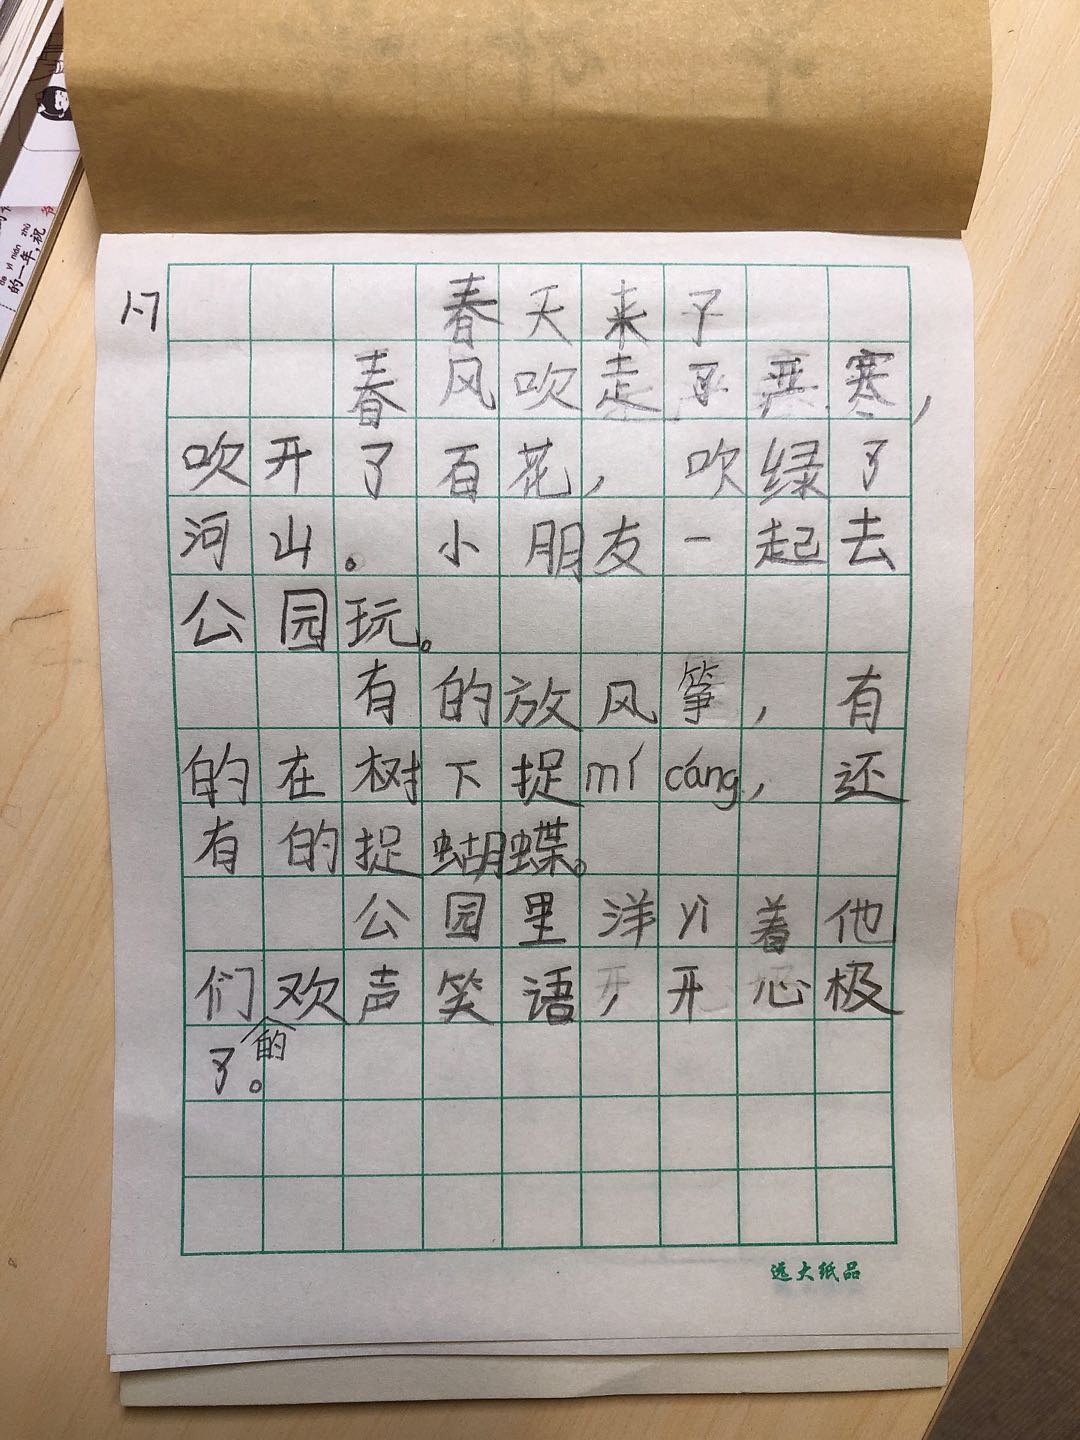 1-7
春天来了
春风吹走了严寒,
吹开了百花,吹绿了
河山。小朋友一起去
公园玩。
有的放风筝,有
的在树下捉mí cáng,还
有的捉蝴蝶。
公园里洋yì着他
们的欢声笑语,开心极
了。
远大纸品
dào yì nián zhù
的一年,祝